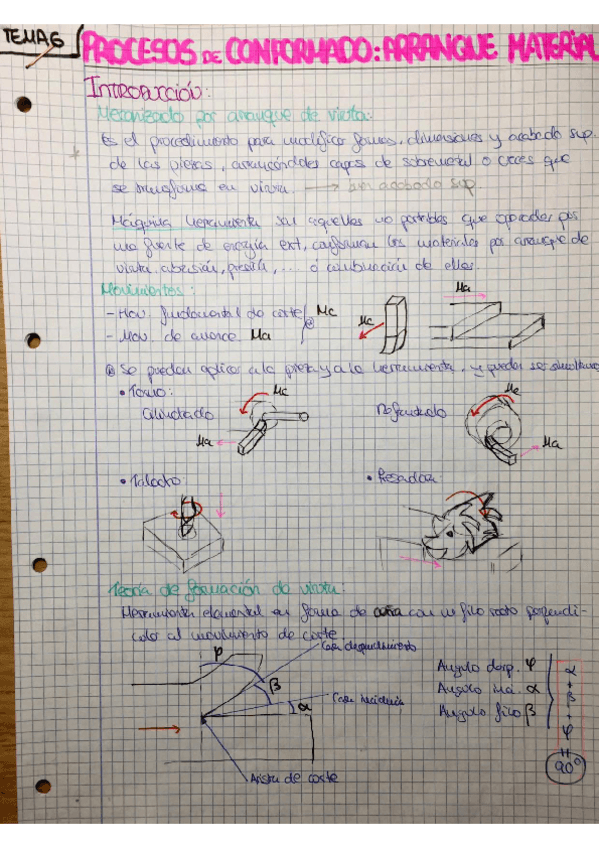 TEMA 6
PROCESOS DE CONFORMADO: ARRANQUE MATERIAL
INTRODUCCIÓN:
Mecanizado por arranque de viruta:
Es el procedimiento para modificar formas, dimensiones y acabado sup.
de las piezas, arrancándoles capas de sobremetal o creces que
se transforma en viruta. → buen acabado sup.
Máquina herramienta son aquellas no portátiles que operadas por
una fuente de energía ext, conforman los materiales por arranque de
viruta, abrasión, presión, ... ó combinación de ellos.
Movimientos:
- Mov. fundamental de corte Mc
- Mov. de avance Ma
Mc
Ma
Se pueden aplicar a la pieza y a la herramienta, y pueden ser simultáneos
• Torno:
Cilindrado
Mc
Ma
Refrentado
Mc
Ma
• Taladro:
• Fresadora:
Teoría de formación de viruta:
Herramienta elemental en forma de cuña con un filo recto perpendi-
cular al movimiento de corte
Cara desprendimiento
β
Cara incidencia
α
Arista de corte
Angulo desp. φ
Angulo inci. α
Angulo filo β
α + β + φ = 90°